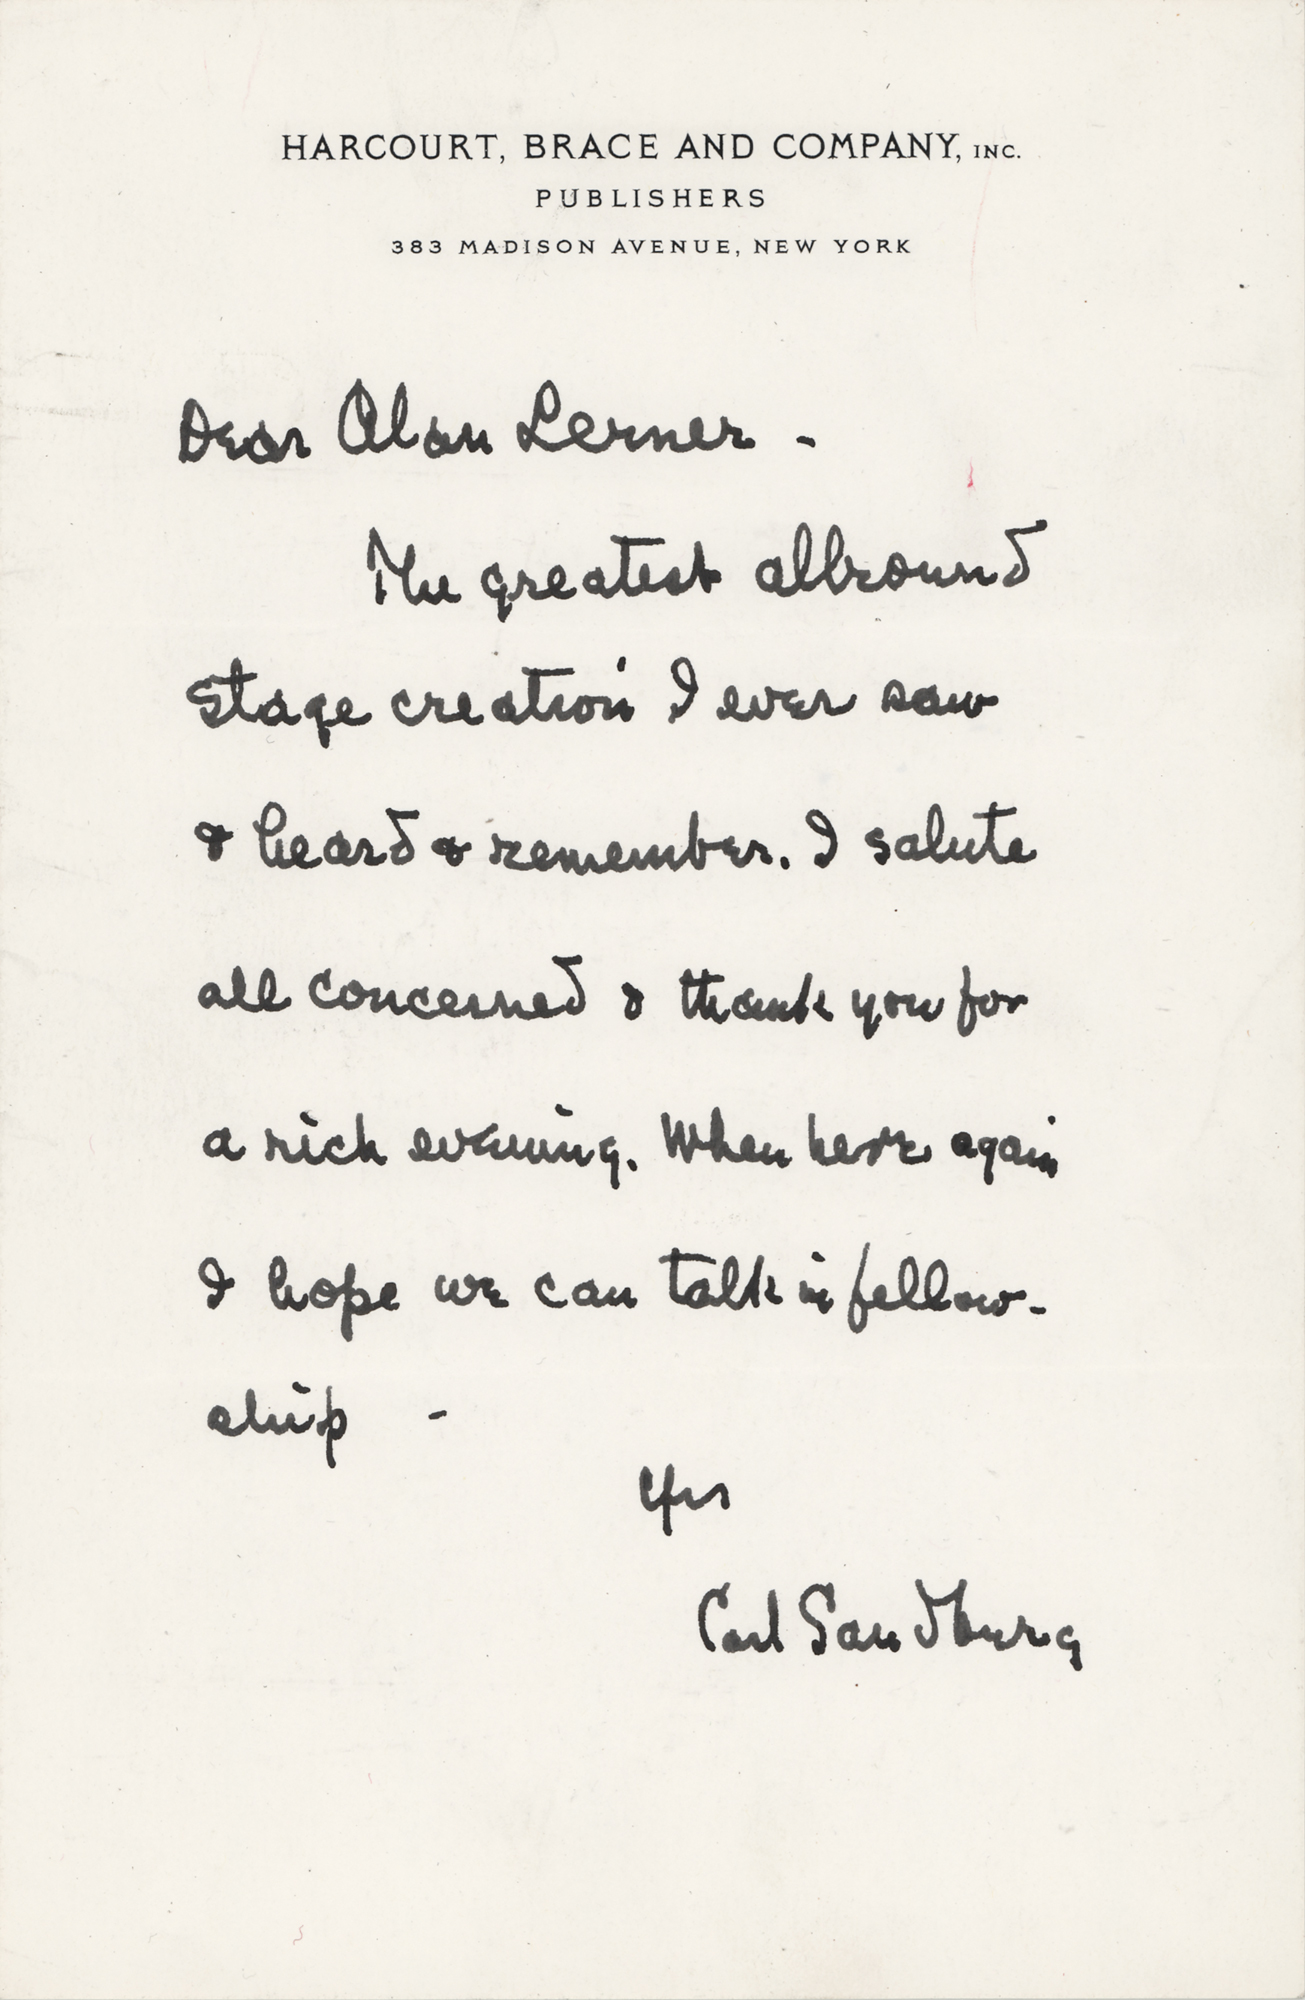 HARCOURT, BRACE AND COMPANY, INC.
PUBLISHERS
383 MADISON AVENUE, NEW YORK
Dear Alan Lerner -
The greatest allround
stage creation I ever saw
& heard & remember. I salute
all concerned & thank you for
a rich evening. When here again
I hope we can talk in fellow-
ship -
Yrs
Carl Sandburg